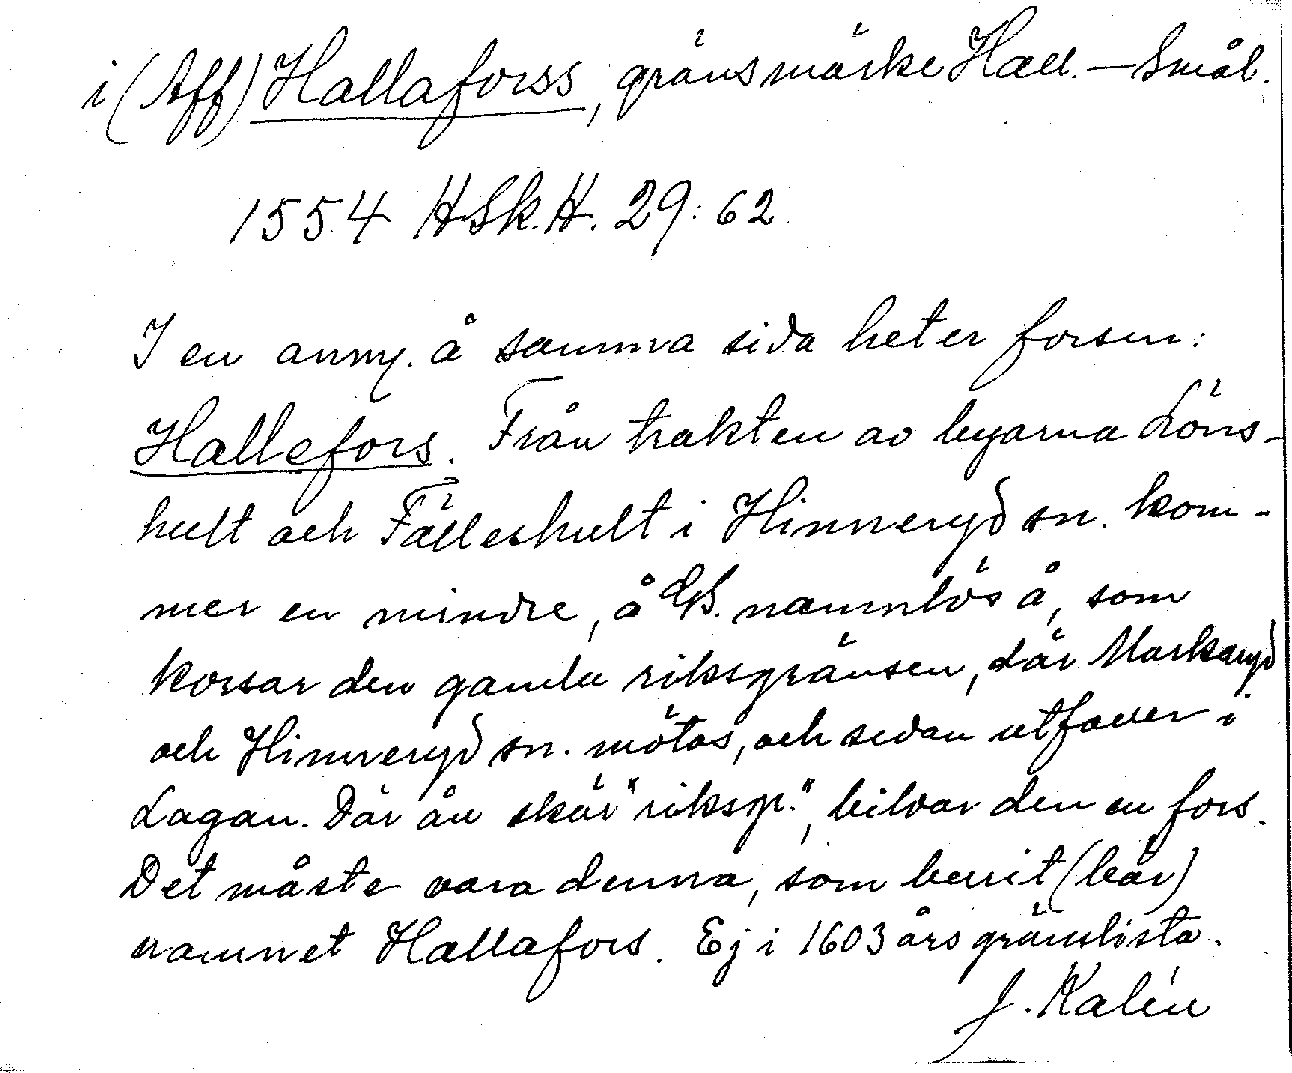 i (Aff) Hallaforss, gränsmärke Hall. — Smål.
1554 HSk.H. 29:62
I en anm. å samma sida heter forsen:
Hallefors. Från trakten av byarna Löns-
hult och Fälleshult i Hinneryd sn. kom-
mer en mindre, å GB. namnlös å, som
korsar den gamla riksgränsen, där Markaryd
och Hinneryd sn. mötas, och sedan utfaller i
Lagan. Där ån skär "riksgr.", bildar den en fors.
Det måste vara denna, som burit (bär)
namnet Hallafors. Ej i 1603 års gränslista.
J. Kalén